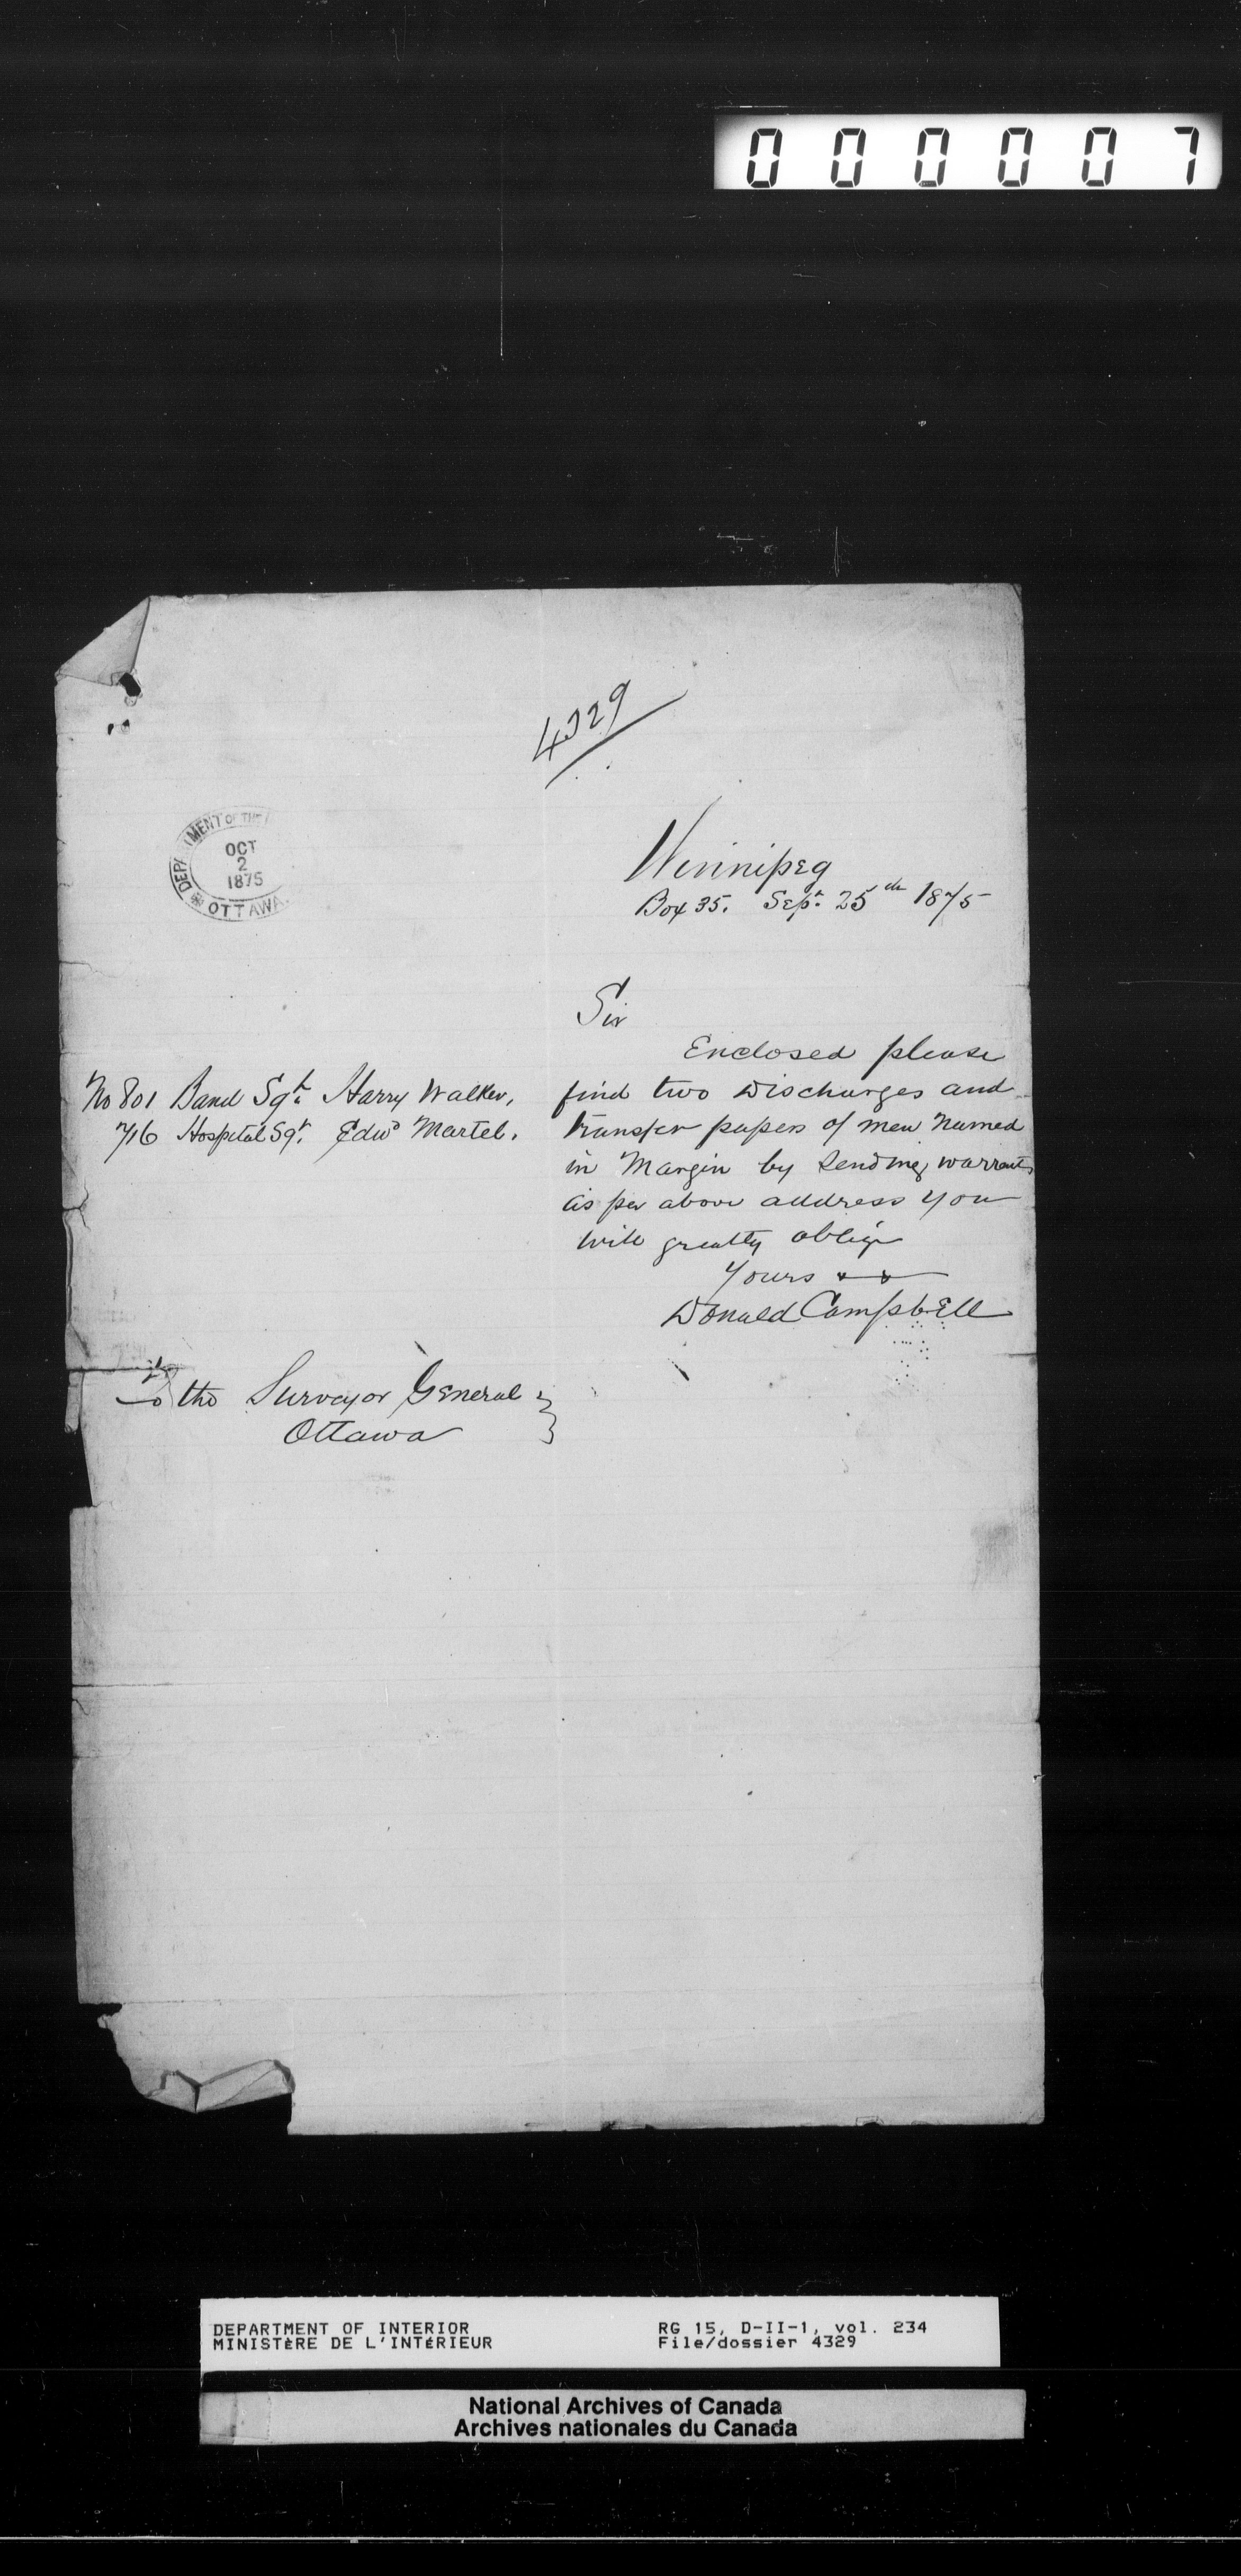 000007
4329
DEPARTMENT OF THE
OCT
2
1875
OTTAWA
Winnipeg
Box 35. Sept. 25th 1875
Sir
Enclosed please
find two Discharges and
transfer papers of men named
in Margin by sending warrants
as per above address you
will greatly oblige
Yours
Donald Campbell
No 801 Band Sgt. Harry Walker,
716 Hospital Sgt. Edwd Martel.
To the Surveyor General
Ottawa
DEPARTMENT OF INTERIOR
MINISTÈRE DE L'INTÉRIEUR
RG 15, D-II-1, vol. 234
File/dossier 4329
National Archives of Canada
Archives nationales du Canada